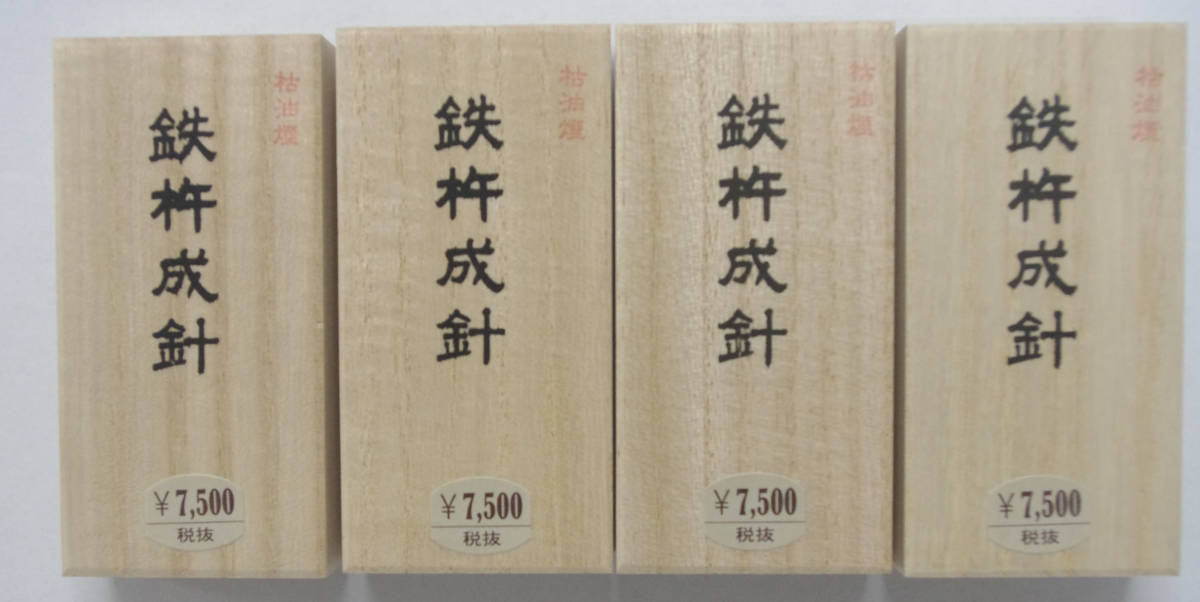 枯油煙
鉄杵成針
¥7,500
税抜
枯油煙
鉄杵成針
¥7,500
税抜
枯油煙
鉄杵成針
¥7,500
税抜
枯油煙
鉄杵成針
¥7,500
税抜